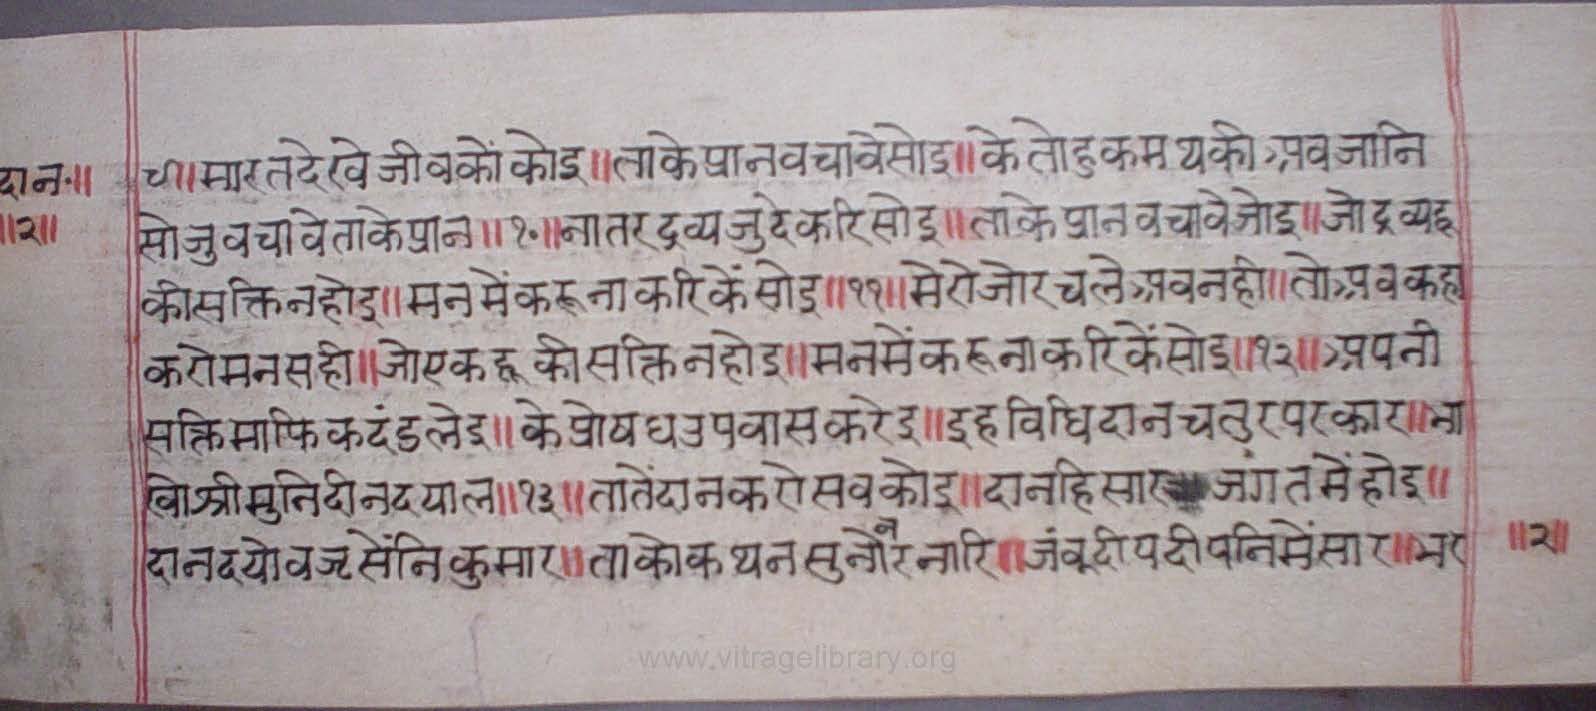 दान॥ ची॥मारतदेखेजीवकोंकोइ॥ताकेप्रानवचावेसोइ॥केतोहुकमथकीअवजानि
॥२॥ सोजुवचावेताकेप्रान॥१०॥नातरद्रव्यजुदेकरिसोइ॥ताकेप्रानवचावेजोइ॥जोद्रव्यहू
कीसक्तिनहोइ॥मनमेंकरूनाकरिकेंसोइ॥११॥मेरोजोरचलेअवनही॥तोअवकहा
करोमनसही॥जोएकहूकीसक्तिनहोइ॥मनमेंकरूनाकरिकेंसोइ॥१२॥अपनी
सक्तिमाफिकदंडलेइ॥केप्रोषधउपवासकरेइ॥इहविधिदानचतुरपरकार॥भा
खोश्रीमुनिदीनदयाल॥१३॥तातेंदानकरोसवकोइ॥दानहिसारजगतमेंहोइ॥
दानदयोवज्रसेंनिकुमार॥ताकोकथनसुनोनरनारि॥जंवूदीपदीपनिमेंसार॥भर ॥२॥
www.vitragelibrary.org